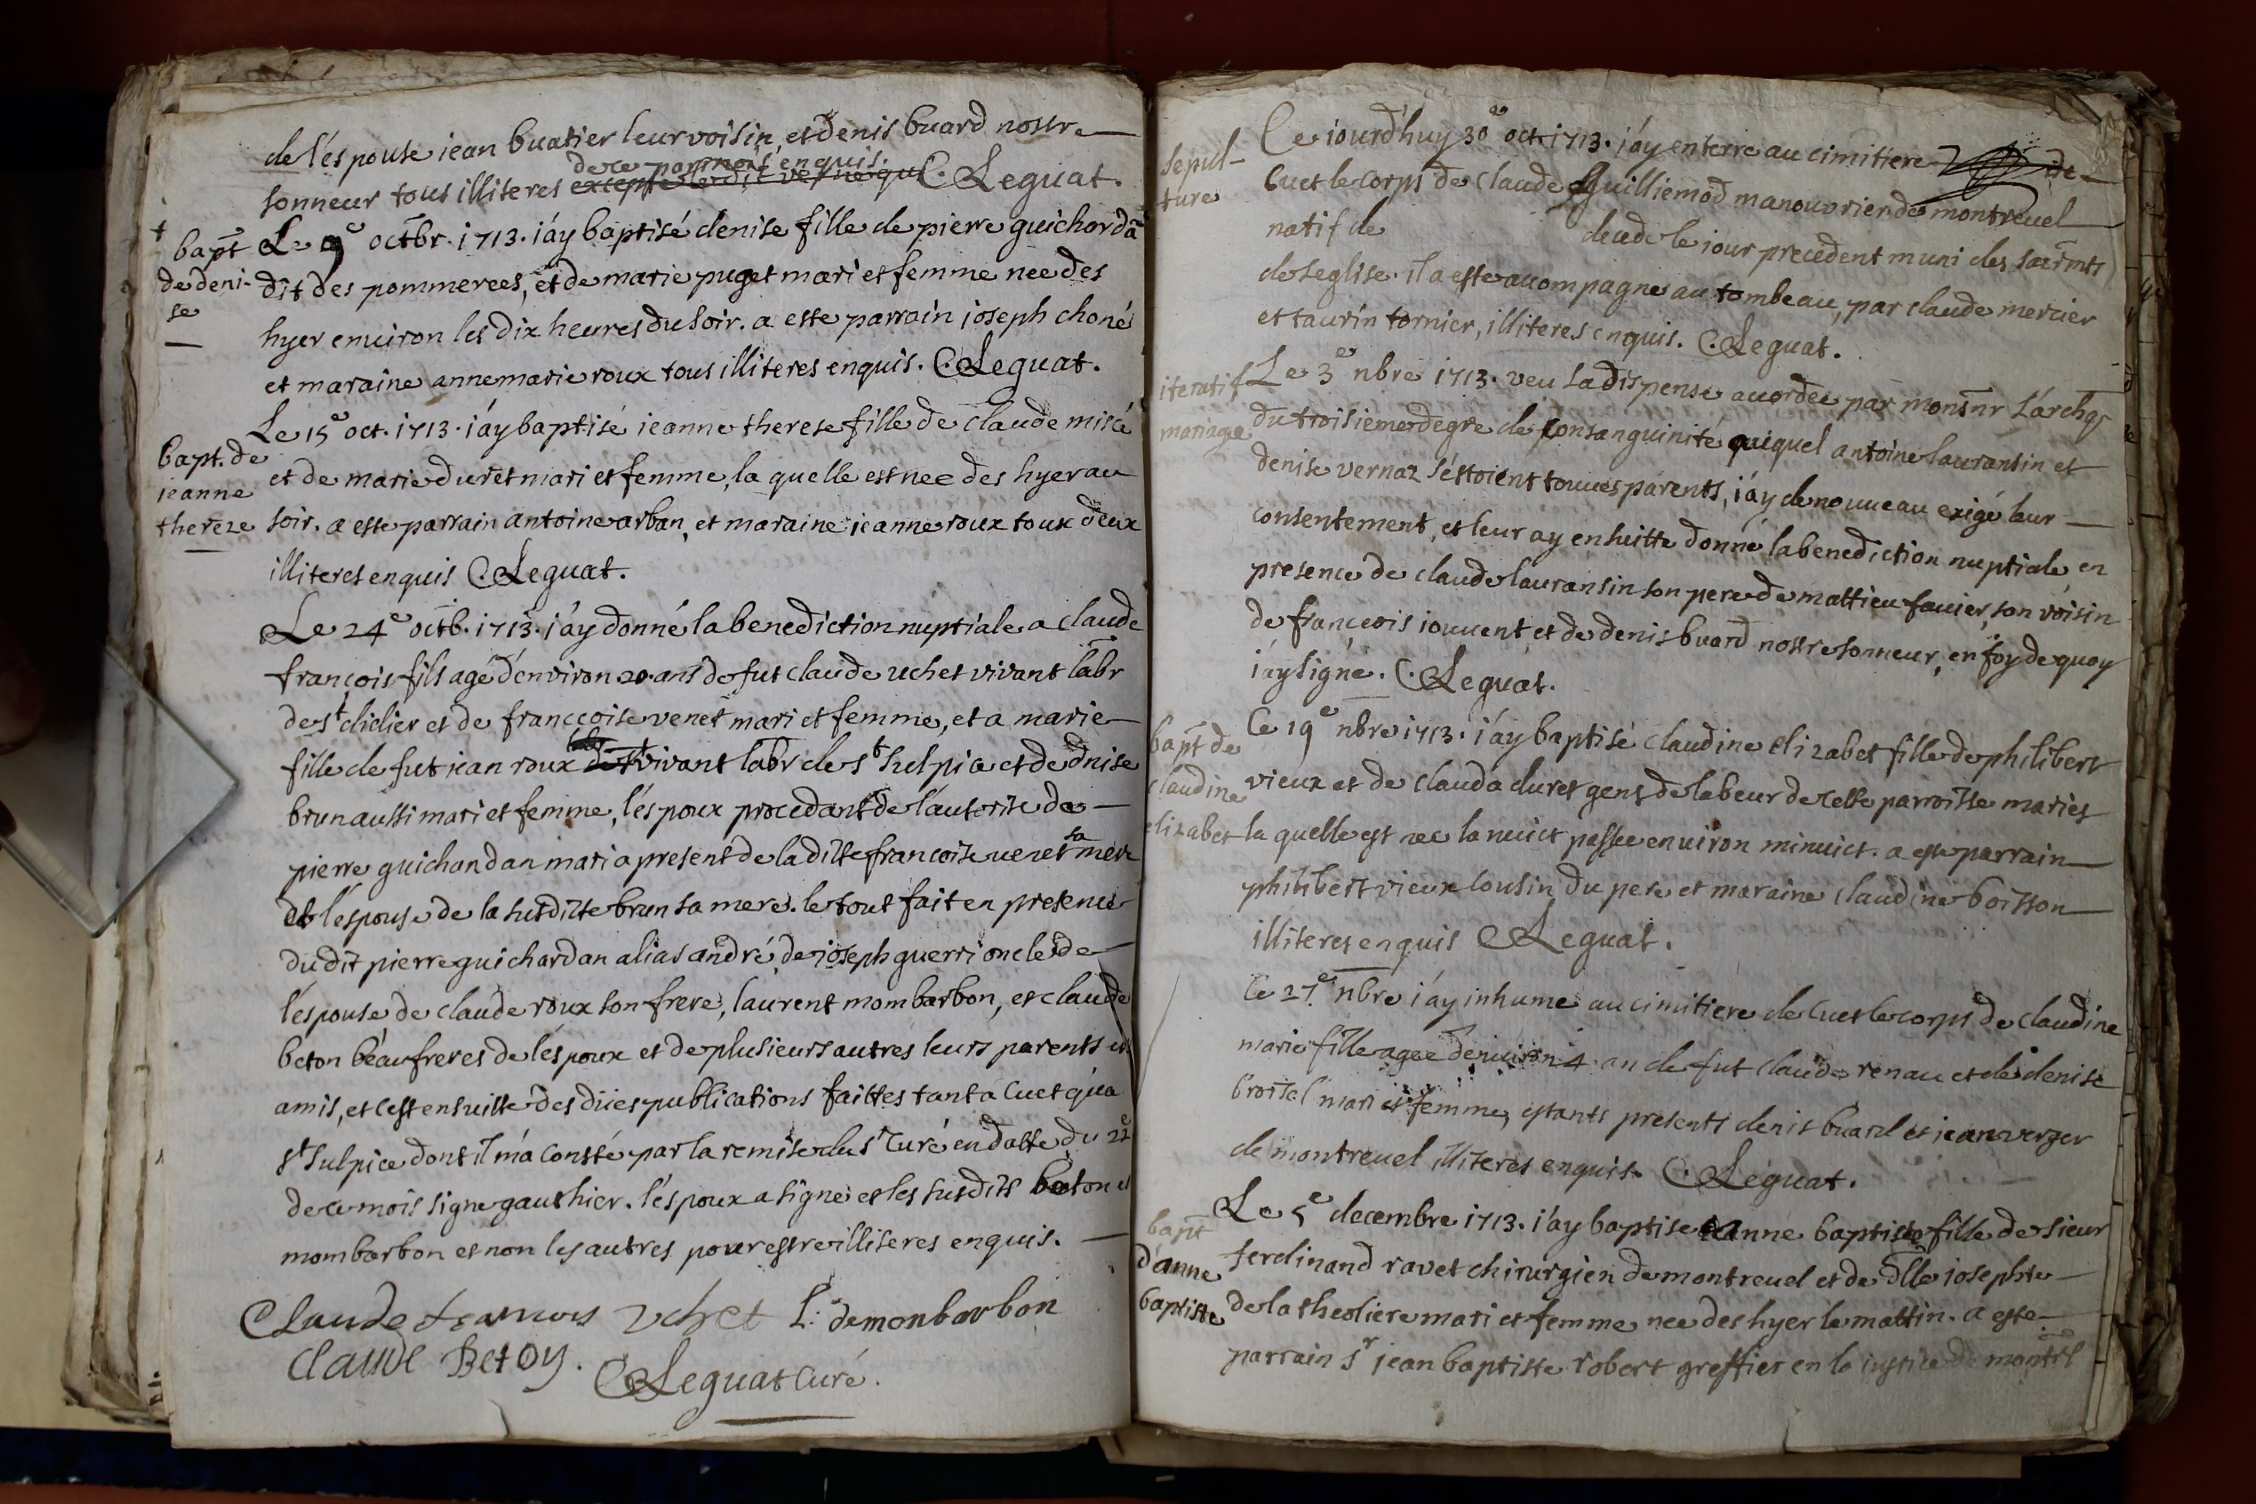 de l'éspouse jean buatier leur voisin, et denis buard nostre
de ce par moi enquis.
sonneur tous illiteres C. Leguat.
bapt
de deni-
se
Le 9e octbr. 1713. i'áy baptisé denise fille de pierre guichordã
dit des pommerees, et de marie puget mari et femme nee des
hyer environ les dix heures du soir. a este parrain joseph choné
et maraine annemarie roux tous illiteres enquis. C. Leguat.
bapt. de
jeanne
thereze
Le 15e oct. 1713. i'áy baptisé jeanne therese fille de claude misé
et de marie duret mari et femme, la quelle est nee des hyer au
soir. a este parrain antoine arban, et maraine jeanne roux tous deux
illiteres enquis C. Leguat.
Le 24e octb. 1713. i'áy donné la benediction nuptiale a claude
françois fils agé d'environ 20. ans de fut claude uchet vivant labr
de st didier et de françcoise venet mari et femme, et a marie
fille de fut jean roux vivant labr de st sulpice et de dnise
brun aussi mari et femme, l'éspoux procedant de l'áutorite de
pierre guichandan mari a present de la ditte francoise venet sa mere
et l'espouse de la susditte brun sa mere. le tout fait en presence
du dit pierre guichardan alias andré, de joseph guerri oncle de
l'éspouse de claude roux son frere, laurent mombarbon, et claude
beton béaufreres de l'éspoux et de plusieurs autres leurs parents et
amis, et c'est ensuitte des dites publications faittes tant a Cuet qu'a
st sulpice dont il m'a consté par la remise du sr curé en datte du 22e
de ce mois signe gauthier. l'éspoux a signé et les susdits beton et
mombarbon et non les autres pour estre illiteres enquis.
Claude francois Vchet L: demonbarbon
claude Beton.
C Leguat curé.
sepul-
ture
Ce iourd'huy 30e oct. 1713. i'áy enterré au cimitiere de
Cuet le corps de claude guilliemod manouvrier de montrevel
natif de decede le iour precedent muni des sacrmts
de l'eglise. il a este acompagne au tombeau, par claude mercier
et taurin tornier, illiteres enquis. C. Leguat.
iteratif
mariage
Le 3e nbre 1713. veu la dispense acordée par monsnr l'árchq
du troisieme degre de consanguinité auquel antoine lauransin et
denise vernaz s'éstoient touvés parents, i'áy de nouveau exigé leur
consentement, et leur ay ensuitte donné la benediction nuptiale en
presence de claude lauransin son pere de mattieu favier, son voisin
de françcois iouvent et de denis buard nostre sonneur, en foy de quoy
i'áy signé. C. Leguat.
bapt de
claudine
elizabet
Ce 19e nbre 1713. i'áy baptisé claudine elizabet fille de philibert
vieux et de clauda duret gens de labeur de cette parroisse mariés
la quelle est nee la nuict passee environ minuict. a este parrain
philibert vieux cousin du pere et maraine claudine boisson
illiteres enquis C Leguat.
Ce 27e nbre i'áy inhumé au cimitiere de Cuet le corps de claudine
marie fille agee d'environ 4 an de fut claude renau et de denise
mari et femme, estants presents denis buard et jean verzer
de montrevel illiteres enquis. C. Leguat.
bapt
d'anne
baptiste
Le 5e decembre 1713. i'áy baptise anne baptiste fille de sieur
ferdinand ravet chirurgien de montrevel et de dlle iosephte
de la theoliere mari et femme nee des hyer le mattin. a este
parrain sr jean baptiste robert greffier en la iustice de montrl